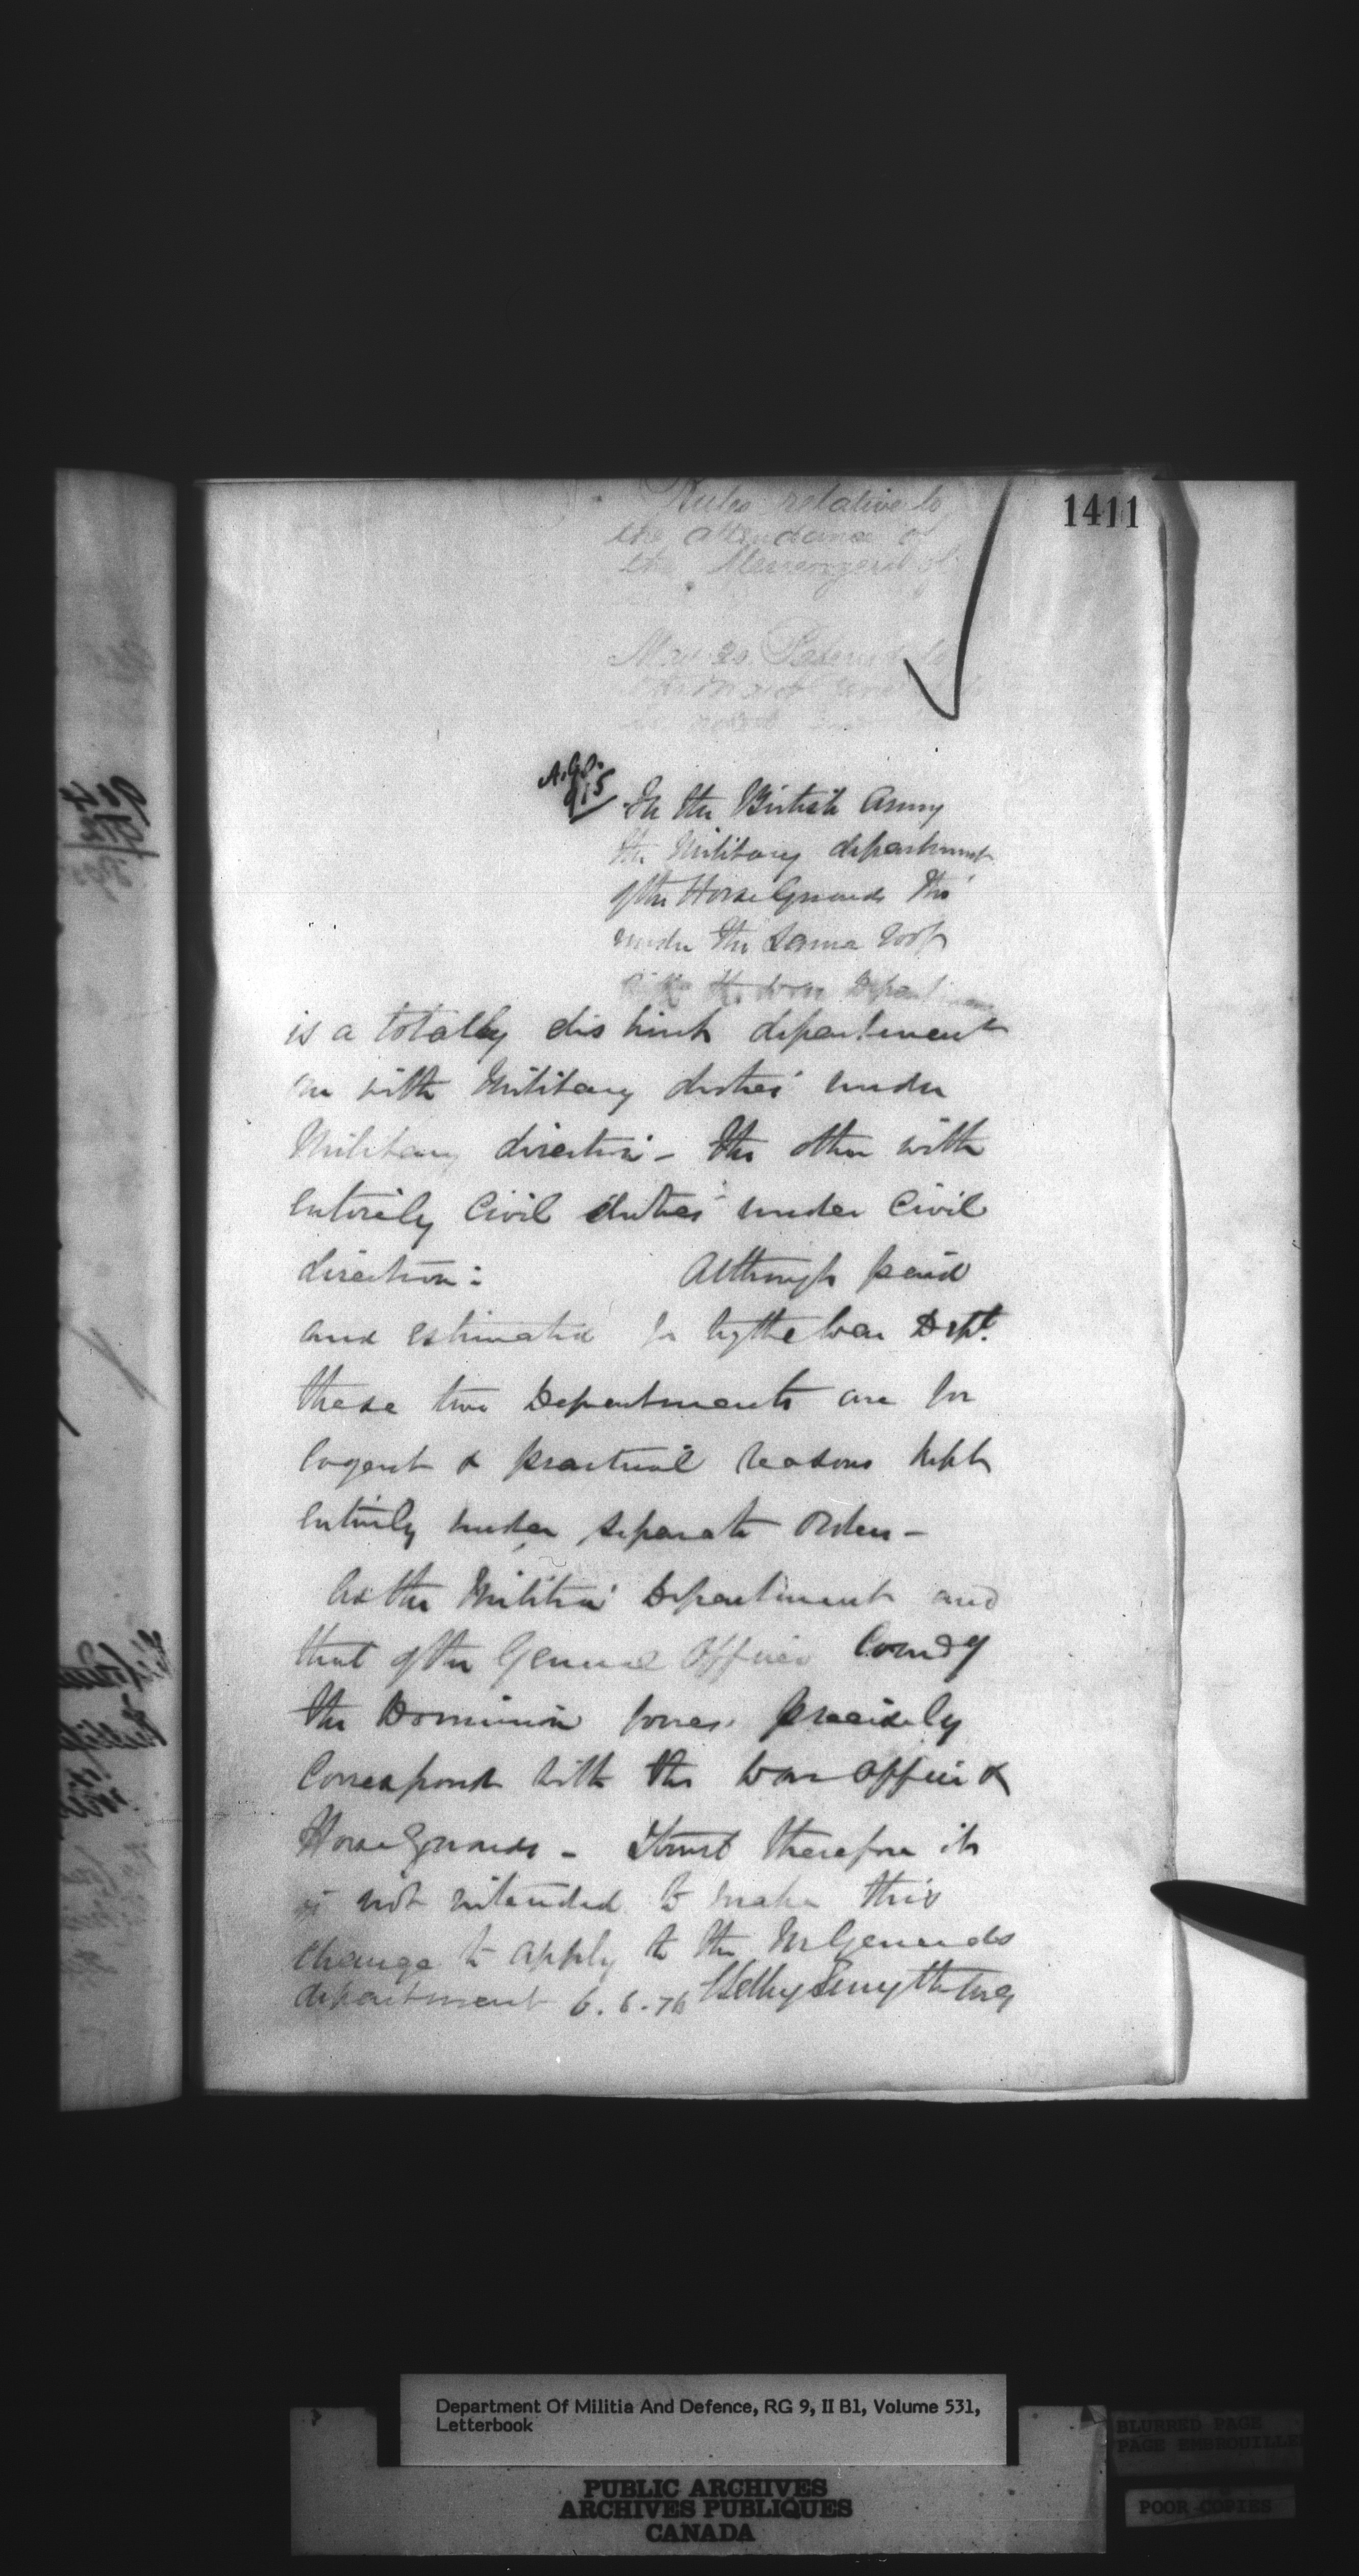 1411
Rules relative to
the attendance of
the Messengers of
May 30
A.G.O.
915
In the British Army
the Military department
of the Horse Guards tho'
under the same roof
with the War Department
is a totally distinct department
one with Military duties under
Military direction - the other with
entirely Civil duties under Civil
direction: Although paid
and estimated for by the War Dept.
these two Departments are for
cogent & practical reasons kept
entirely under separate orders -
As the Militia Department and
that of the General Officer Comdg
the Dominion forces precisely
correspond with the War Office &
Horse Guards - I trust therefore it
is not intended to make this
change to apply to the M Generals
department 6.6.76 Selby Smyth MG
Department Of Militia And Defence, RG 9, II B1, Volume 531,
Letterbook
PUBLIC ARCHIVES
ARCHIVES PUBLIQUES
CANADA
BLURRED PAGE
PAGE EMBROUILLE
POOR COPIES